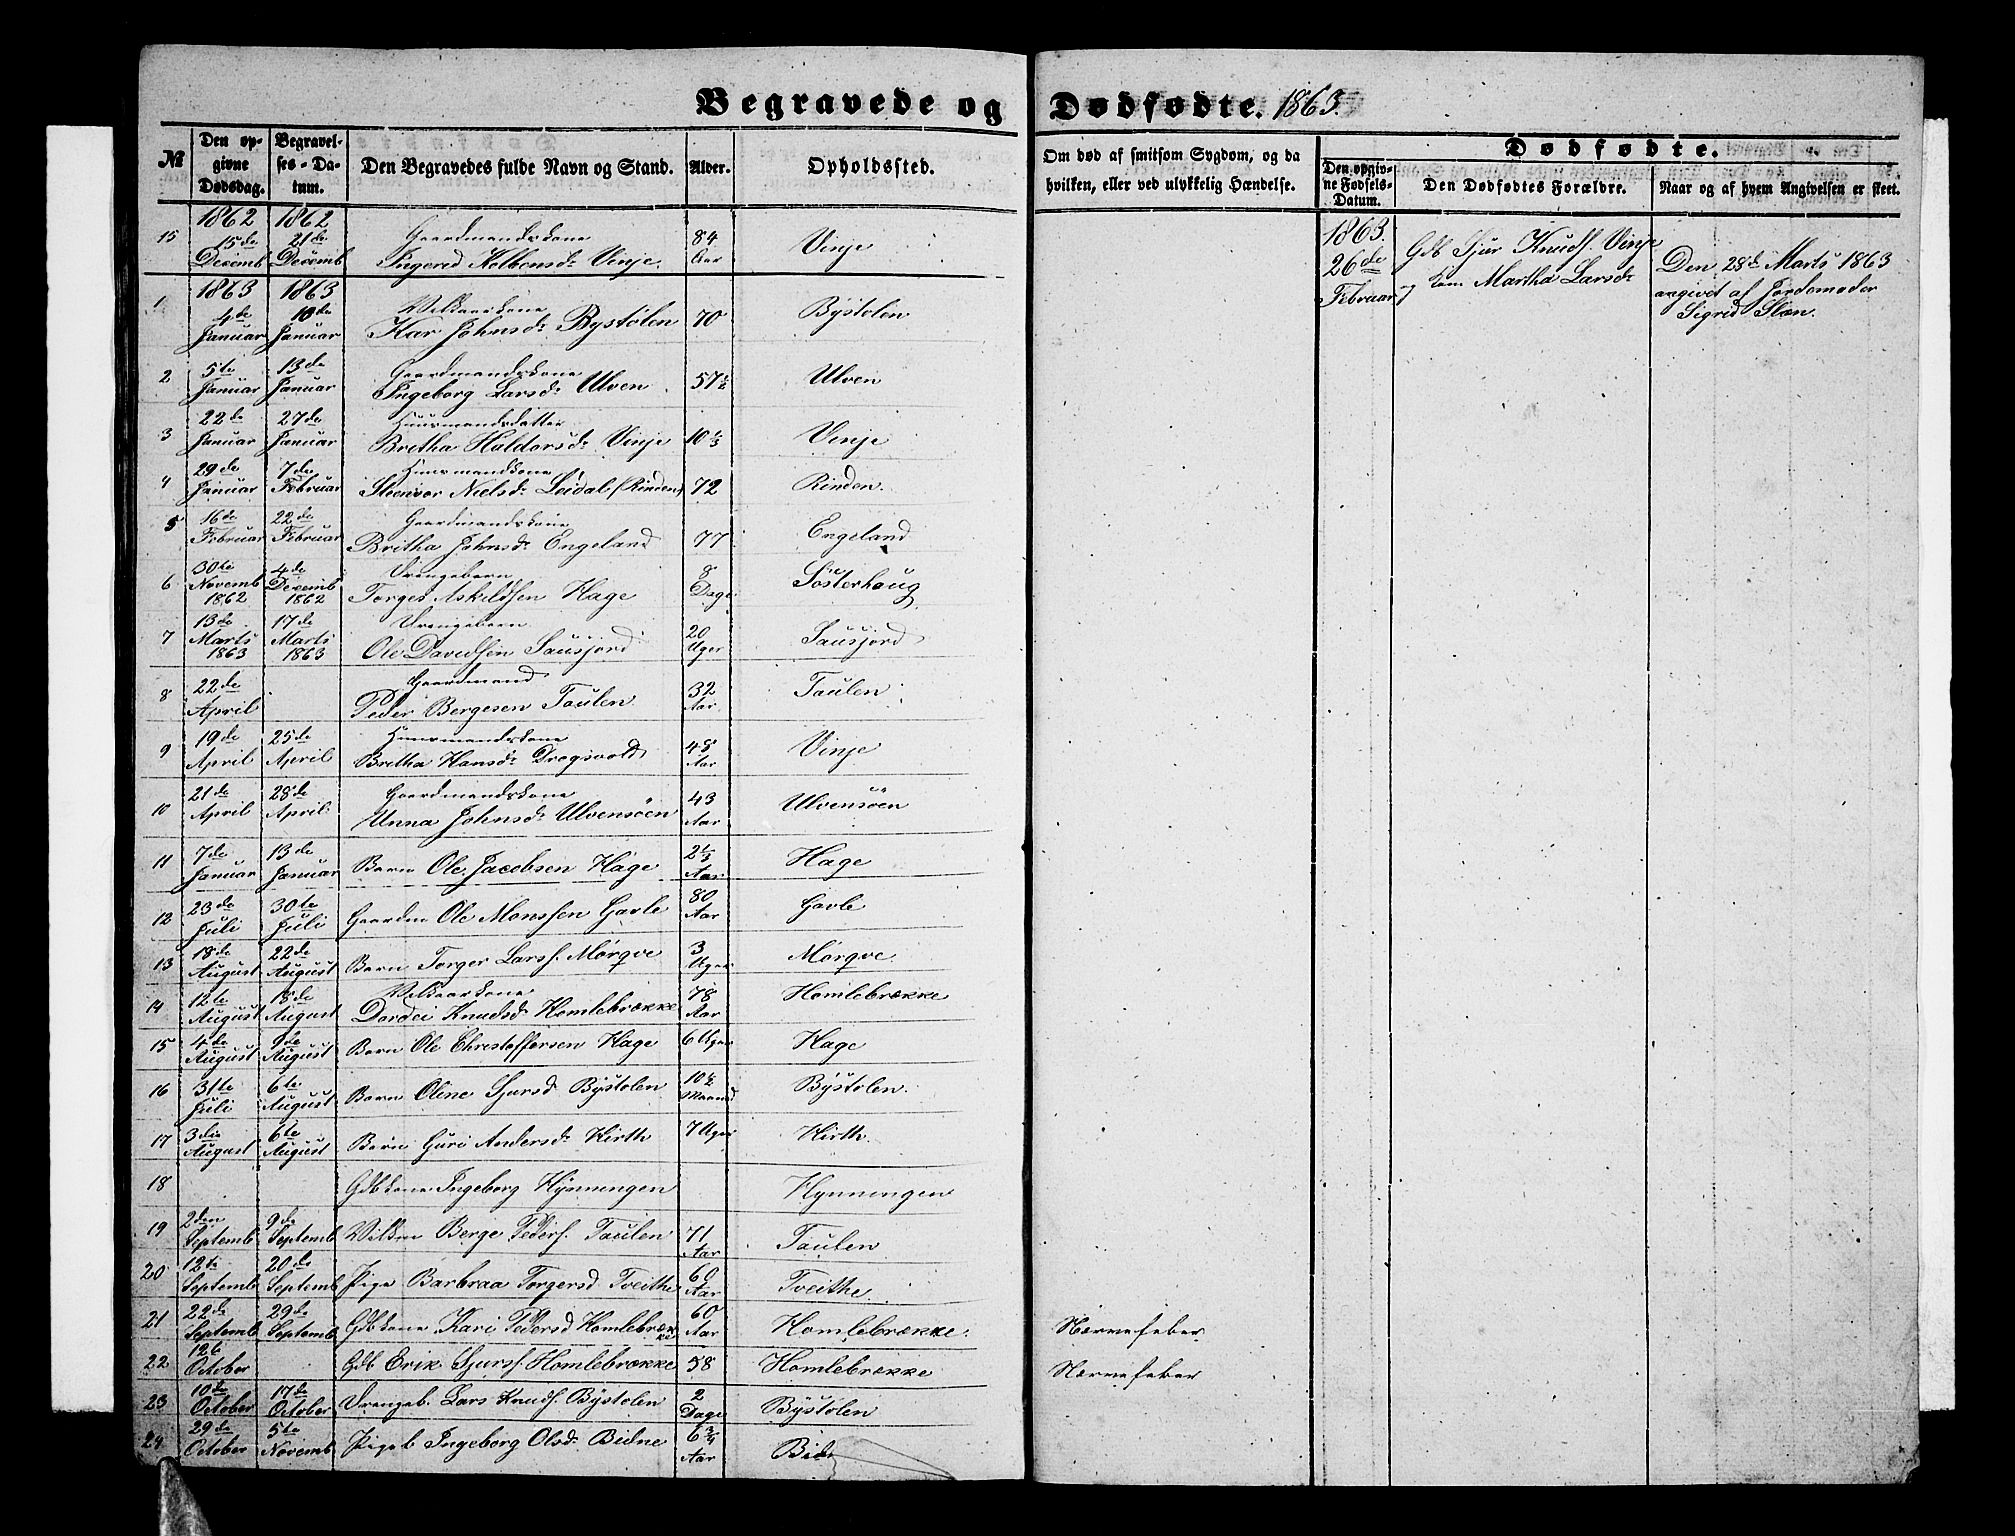 Begravede og Dødfødte. 1863.
№
Den opgivne Dødsdag.
Begravelses-Datum.
Den Begravedes fulde Navn og Stand.
Alder.
Opholdssted.
Om død af smitsom Sygdom, og da hvilken, eller ved ulykkelig Hændelse.
Dødfødte.
Den opgivne Fødsels-Datum.
Den Dødfødtes Forældre.
Naar og af hvem Angivelsen er skeet.
15 1862 15de Decemb 1862 21de Decemb Gaardmandskone Ingerid Kolbensdr Vinje. 84 Aar Vinje
1 1863 4de Januar 1863 10de Januar Vilkaarskone Kar Johnsdr Bystølen 70 Bystølen
2 5te Januar 13de Januar Gaardmandskone Ingeborg Larsdr Ulven 57½ Ulven
3 22de Januar 27de Januar Huusmandsdatter Britha Haldorsdr Vinje 10⅓ Vinje
4 29de Januar 7de Februar Huusmandskone Steenvor Nielsdr Leidal (Rinden) 72 Rinden.
5 16de Februar 22de Februar Gaardmandskone Britha Johnsdr Engeland 77 Engeland
6 30te Novemb 1862 4de Decemb 1862 Drengebarn Torger Askildsen Hage 8 Dage Søsterhaug
7 13de Marts 1863 17de Marts 1863 Drengebarn Ole Davidsen Sausjord 20 Uger Sausjord
8 22de April Gaardmand Peder Bergesen Taulen 32 Aar Taulen
9 19de April 25de April Huusmandskone Britha Hansdr Dragsvold 48 Aar Vinje
10 21de April 28de April Gaardmandskone Unna Johnsdr Ulvensøen 43 Aar Ulvensøen
11 7de Januar 13de Januar Barn Ole Jacobsen Hage 2⅓ Aar Hage
12 23de Juli 30te Juli Gaardm Ole Monssen Gavle 80 Aar Gavle
13 18de August 22de August Barn Torger Larss. Mørqve 3 Uger Mørqve.
14 12te August 18de August Vilkaarskone Dordei Knudsdr Homlebrække 78 Aar Homlebrække
15 4de August 9de August Barn Ole Christoffersen Hage 6 Uger Hage
16 31te Juli 6te August Barn Oline Sjursd Bystølen 10½ Maaned Bystølen
17 3die August 6te August Barn Guri Andersdr Hirth 7 Uger Hirth.
18 Gdbkone Ingeborg Hynningen Hynningen
19 2den Septemb 9de Septemb Vilkm Berge Peders. Taulen 71 Aar Taulen
20 12te Septemb 20de Septemb Pige Barbraa Torgersd Tveithe 60 Aar Tveithe.
21 22de Septemb 29de Septemb Gdbkone Kari Pedersd Homlebrække 60 Aar Homlebrække. Nervefeber
22 12te October Gdb Erik Sjurss. Homlebrække 38 Homlebrække Nervefeber
23 10de October 17de October Drengeb. Lars Knuds. Bystølen 2 Dage Bystølen
24 29de October 5te Novemb Pigeb Ingeborg Olsdr Bidne 6¾ Aar Bid
1863. 26de Februar
Gdb Sjur Knuds. Vinje
og Kone Martha Larsdr
Den 28de Marts 1863
angivet af Jordemoder
Sigrid Slæn.